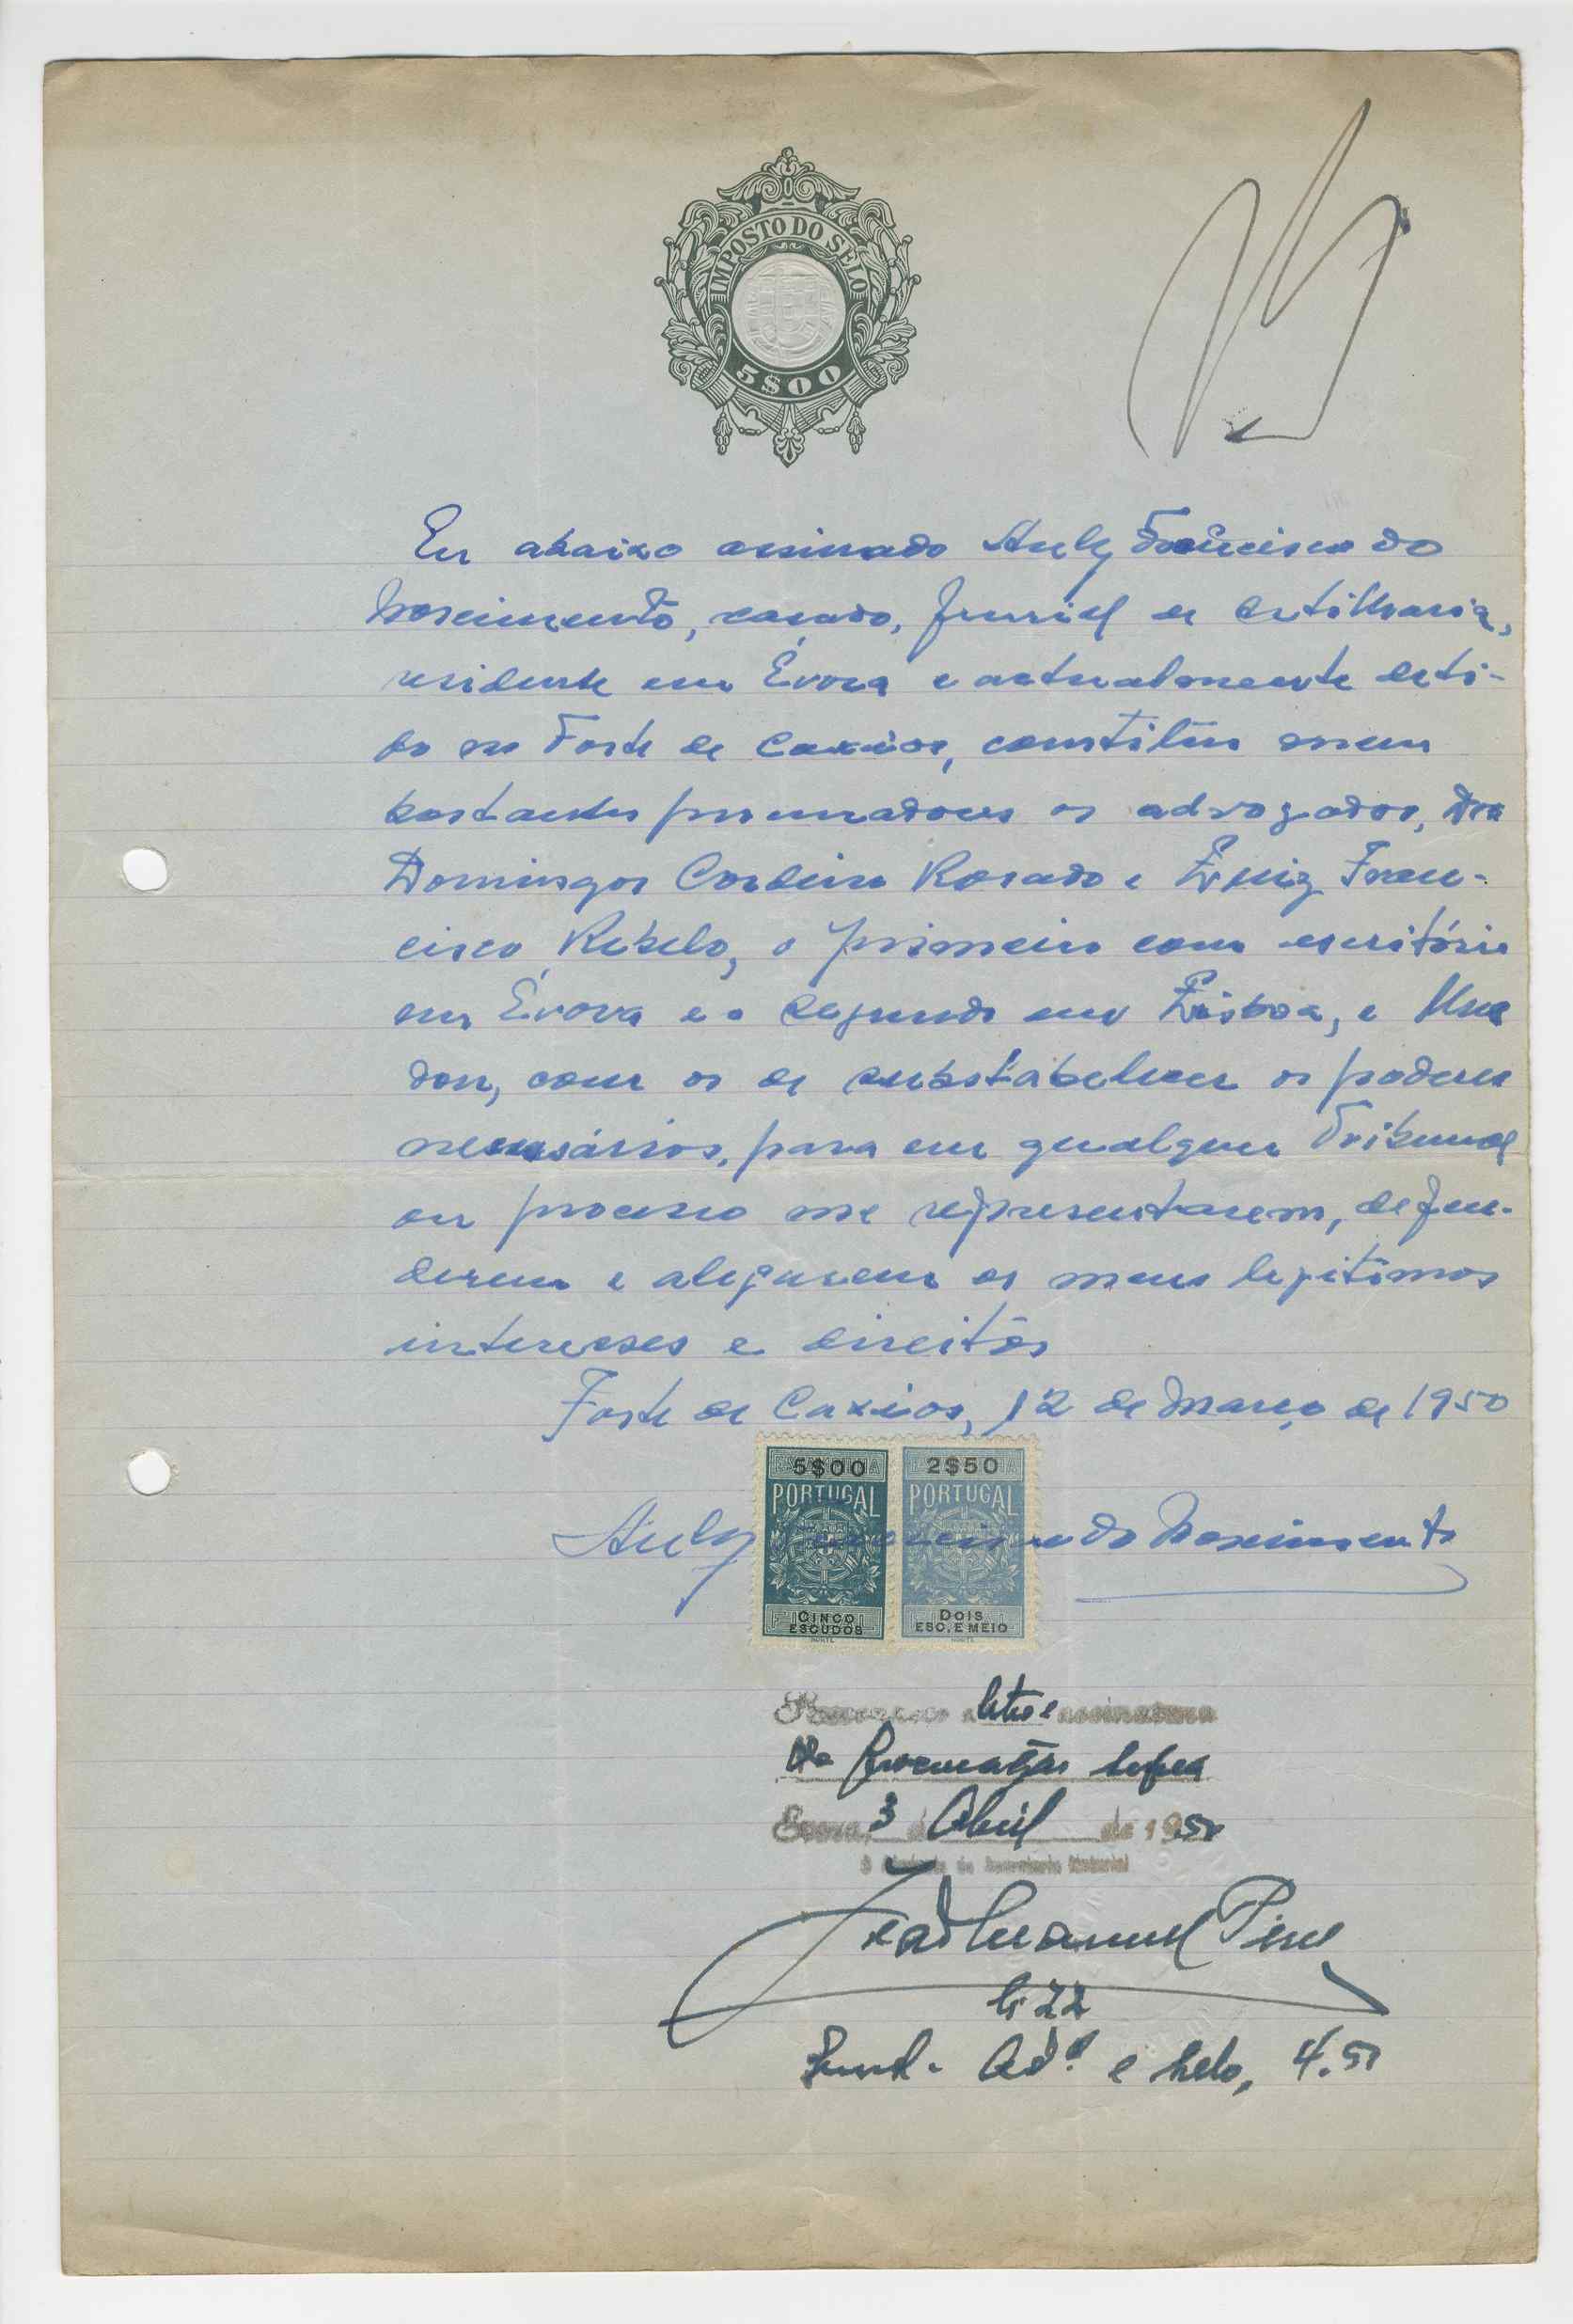 IMPOSTO DO SELO
5$00
Eu abaixo assinado Francisco do
Nascimento, casado, furriel de artilharia,
residente em Évora e actualmente deti-
do no Forte de Caxias, constituo meus
bastantes procuradores os advogados, Drs
Domingos Cordeiro Rosado e Luiz Fran-
cisco Rebelo, o primeiro com escritório
em Évora e o segundo em Lisboa, e lhes
dou, com os de substabelecer os poderes
necessários, para em qualquer Tribunal
ou processo me representarem, defen-
derem e alegarem os meus legitimos
interesses e direitos
Forte de Caxias, 12 de Março de 1950
5$00 2$50
PORTUGAL PORTUGAL
do Nascimento
CINCO ESCUDOS DOIS ESC. E MEIO
Reconheço a letra e assinatura
da Procuração supra
Evora, 3 de Abril de 1950
O Ajudante da Secretaria Notarial
Manuel
e selo, 4.50